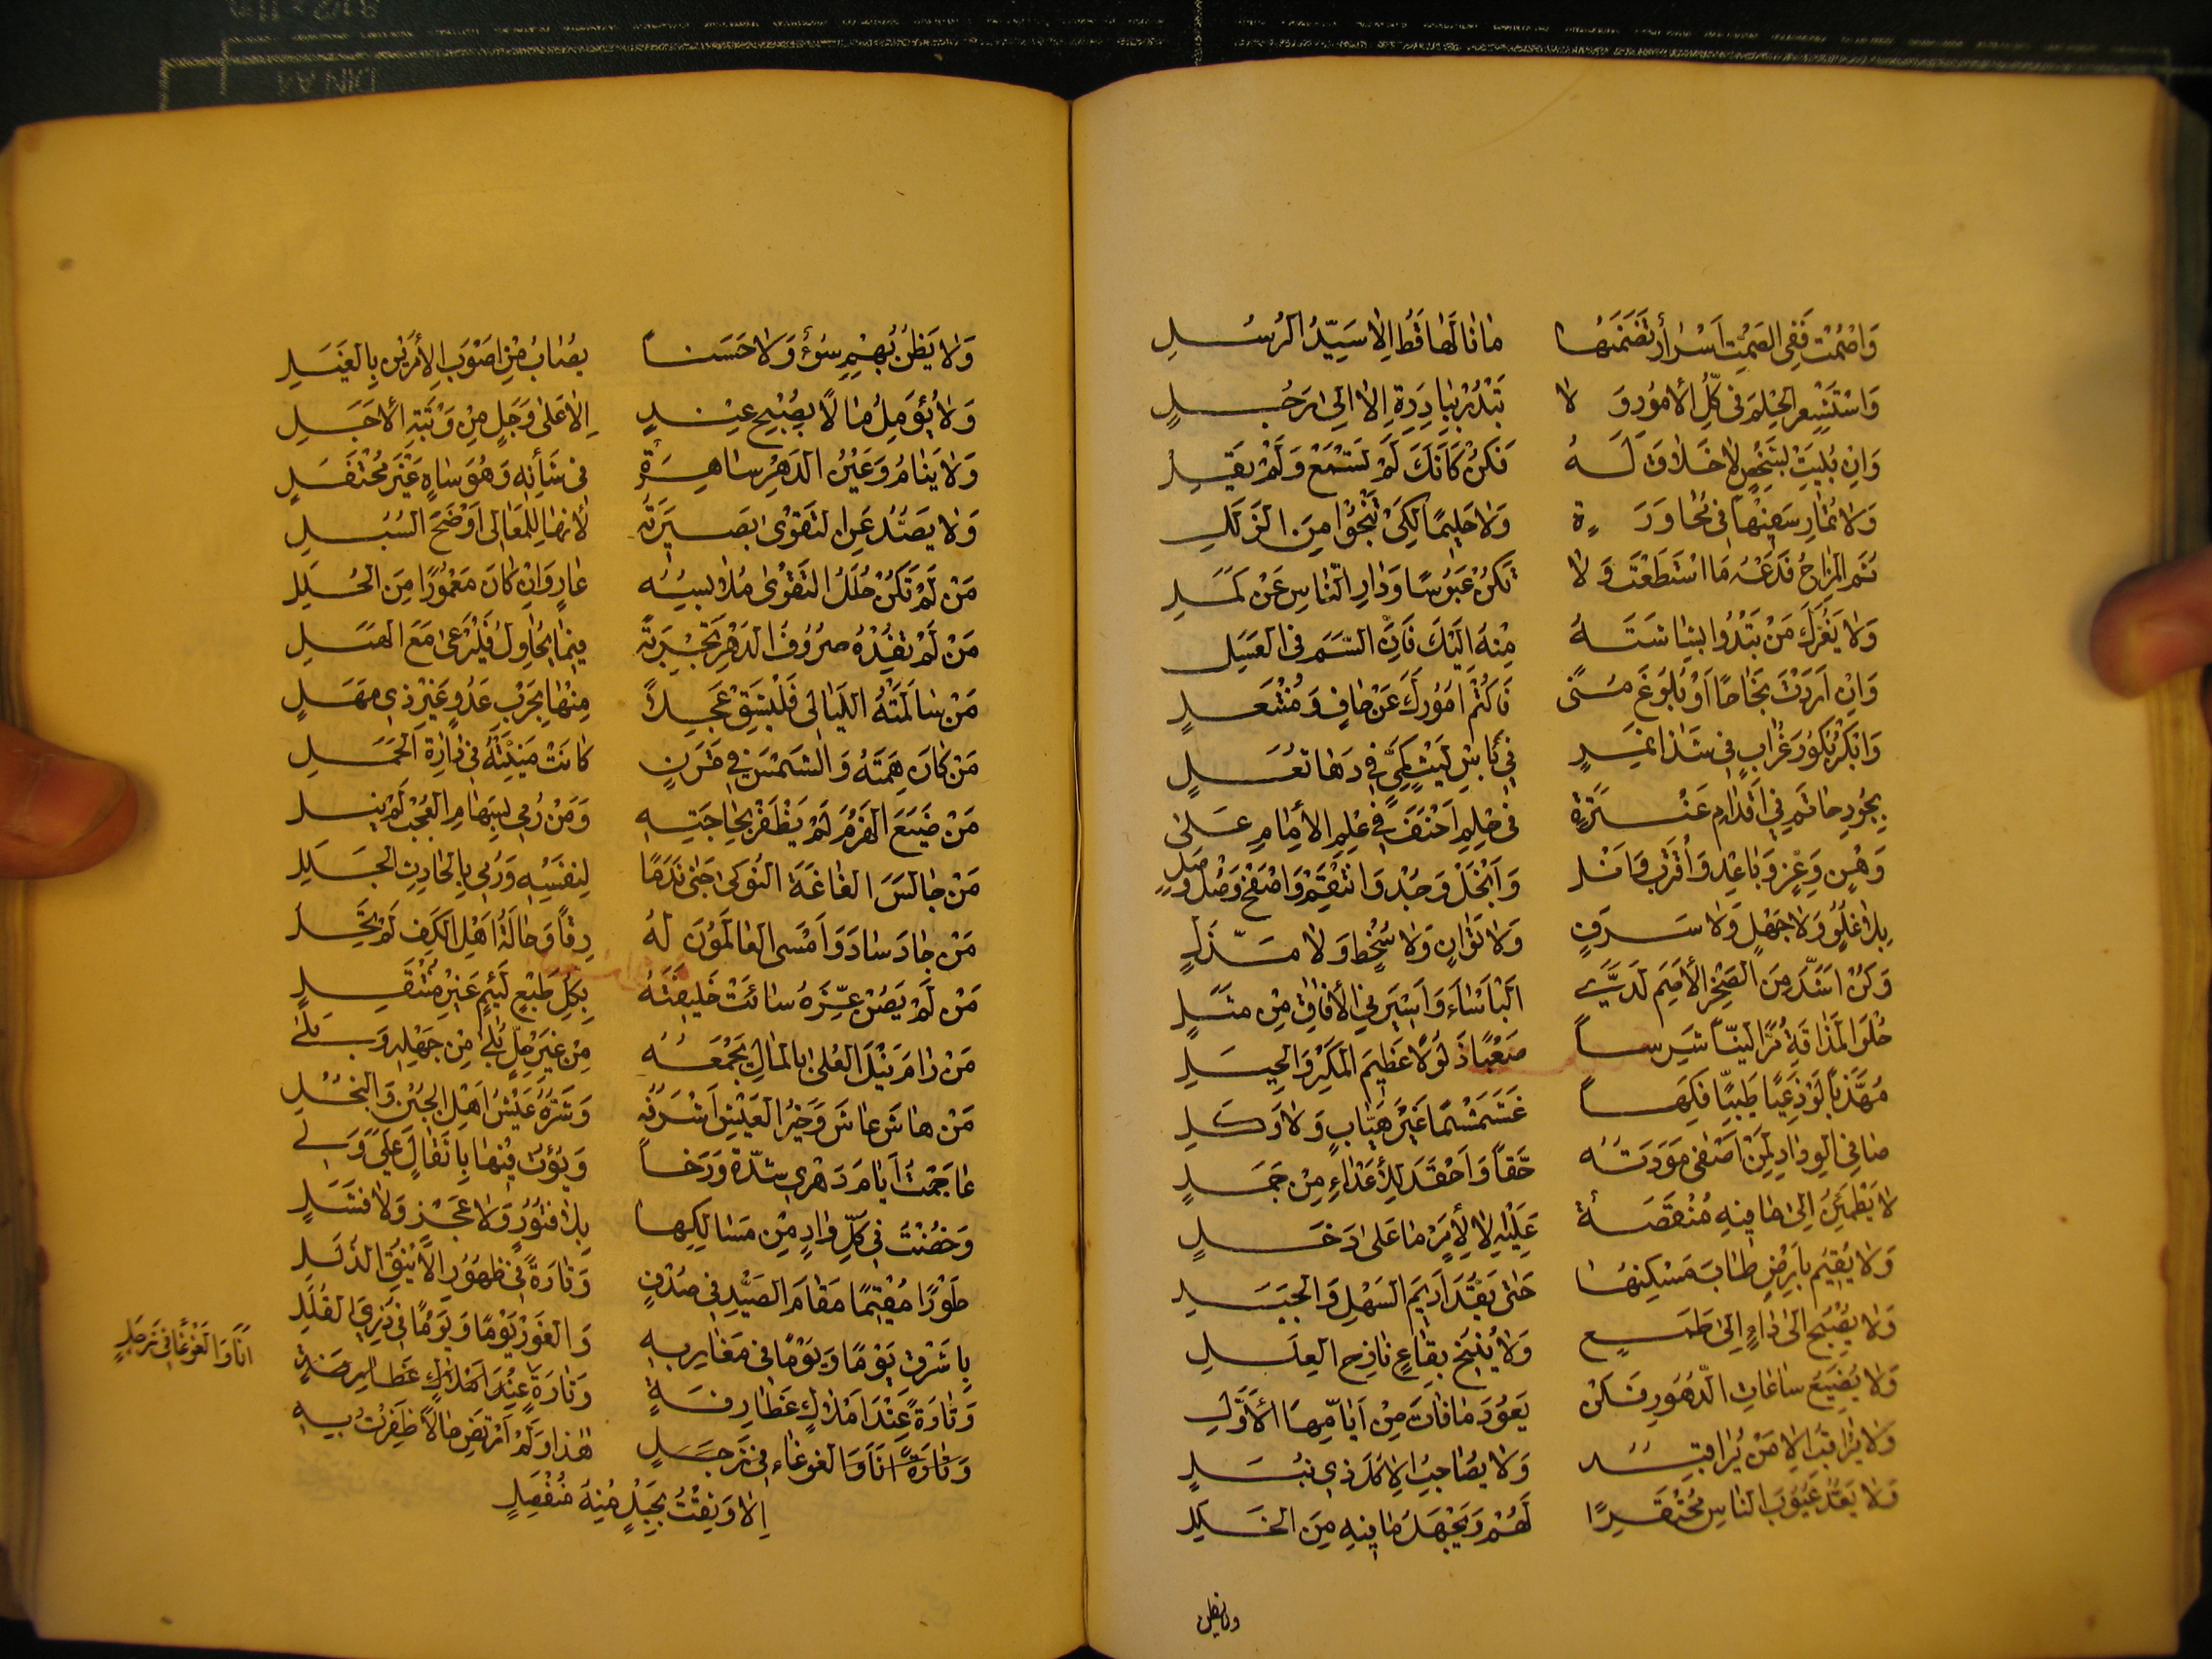 وَاصْمُتْ فَفِي الصَّمْتِ اَسْرَارٌ تَضَمَّنَهَا مَا نَالَهَا قَطُّ اِلَّا سَيِّدُ الرُّسُلِ
وَاسْتَشْعِرِ الْحِلْمَ فِي كُلِّ الْأُمُورِ وَلَا تَبْدُرْ بِبَادِرَةٍ اِلَّا اِلَى رَجُلٍ
وَاِنْ بُلِيتَ بِشَخْصٍ لَا خَلَاقَ لَهُ فَكُنْ كَاَنَّكَ لَمْ تَسْمَعْ وَلَمْ يَقُلِ
وَلَا تُمَارِ سَفِيهًا فِي مُحَاوَرَةٍ وَلَا حَلِيمًا لِكَيْ تَنْجُوا مِنَ الزَّلَلِ
ثُمَّ الْمِزَاحُ فَدَعْهُ مَا اسْتَطَعْتَ وَلَا تَكُنْ عَبُوسًا وَدَارِ النَّاسَ عَنْ كَمَلِ
وَلَا يَغُرَّكَ مَنْ تَبْدُوا بَشَاشَتُهُ مِنْهُ اِلَيْكَ فَاِنَّ السَّمَّ فِي الْعَسَلِ
وَاِنْ اَرَدْتَ نَجَاحًا اَوْ بُلُوغَ مُنًى فَاكْتُمْ اُمُورَكَ عَنْ حَافٍ وَمُنْتَعِلِ
وَابْكُرْ بُكُورَ غُرَابٍ فِي شَذَا نَمِرٍ فِي بَأْسِ لَيْثٍ كَمِيٍّ فِي دَهَا ثُعَلِ
بِجُودِ حَاتَمَ فِي اَقْدَامِ عَنْتَرَةٍ فِي حِلْمِ اَحْنَفَ فِي عِلْمِ الْأِمَامِ عَلِي
وَهُنْ وَعِزَّ وَبَاعِدْ وَاقْتَرِبْ وَاَنِلْ وَابْخَلْ وَجُدْ وَانْتَقِمْ وَاصْفَحْ وَصُلْ وَصِلِ
بِلَا غُلُوٍّ وَلَا جَهْلٍ وَلَا سَرَفٍ وَلَا تَوَانٍ وَلَا سُخْطٍ وَلَا مَذَلِ
وَكُنْ اَشَدَّ مِنَ الصَّخْرِ الْأَصَمِّ لَدَى الْبَأْسَاءِ وَاَسْيَرَ فِي الْأٰفَاقِ مِنْ مَثَلِ
حُلْوَ الْمَذَاقَةِ مُرًّا لَيِّنًا شَرِسًا صَعْبًا ذَلُولًا عَظِيمَ الْمَكْرِ وَالْحِيَلِ
مُهَذَّبًا لَوْذَعِيًّا طَيِّبًا فَكِهًا غَشَمْشَمًا غَيْرَ هَيَّابٍ وَلَا وَكِلِ
صَافِي الْوِدَادِ لِمَنْ اَصْفَى مَوَدَّتَهُ حَقًّا وَاَحْقَدَ لِلْأَعْدَاءِ مِنْ جَمَلِ
لَا يَطْمَئِنُّ اِلَى مَا فِيهِ مُنْقِصَةٌ عَلَيْهِ اِلَّا لِأَمْرٍ مَا عَلَى دَخَلِ
وَلَا يُقِيمُ بِاَرْضٍ طَابَ مَسْكَنُهَا حَتَّى يَقُدَّ اَدِيمَ السَّهْلِ وَالْجَبَلِ
وَلَا يُصِيخُ اِلَى دَاعٍ اِلَى طَمَعٍ وَلَا يُنِيخُ بِقَاعٍ نَازِحِ الْعِلَلِ
وَلَا يُضِيعُ سَاعَاتِ الدُّهُورِ فَلَنْ يَعُودَ مَا فَاتَ مِنْ اَيَّامِهَا الْأُوَلِ
وَلَا يُرَاقِبُ اِلَّا مَنْ يُرَاقِبُهُ وَلَا يُصَاحِبُ اِلَّا كُلَّ ذِي نُبُلِ
وَلَا يَعُدُّ عُيُوبَ النَّاسِ مُحْتَقِرًا لَهُمْ وَيَجْهَلُ مَا فِيهِ مِنَ الْخَلَلِ
ولا يظن
وَلَا يَظُنُّ بِهِمْ سُوْءً وَلَا حَسَنًا يُصَابُ مِنْ اَصْوَبِ الْأَمْرَيْنِ بِالْغِيَلِ
وَلَا يُؤَمِّلُ اٰمَالًا بِصُبْحِ غَدٍ اِلَّا عَلَى وَجَلٍ مِنْ وَثْبَةِ الْأَجَلِ
وَلَا يَنَامُ وَعَيْنُ الدَّهْرِ سَاهِرَةٌ فِي شَأْنِهِ وَهُوَ سَاهٍ غَيْرُ مُحْتَفِلِ
وَلَا يَصُدُّ عَنِ التَّقْوَى بَصِيرَتَهُ لِأَنَّهَا لِلْمَعَالِي اَوْضَحُ السُّبُلِ
مَنْ لَمْ تَكُنْ حُلَلُ التَّقْوَى مَلَابِسَهُ عَارٍ وَاِنْ كَانَ مَغْمُورًا مِنَ الْحُلَلِ
مَنْ لَمْ تُفِدْهُ صُرُوفُ الدَّهْرِ تَجْرِبَةً فِيمَا يُحَاوِلُ فَلْيَرْعَى مَعَ الْهَمَلِ
مَنْ سَالَمَتْهُ اللَّيَالِي فَلْيَثِقْ عَجِلًا مِنْهَا بِحَرْبِ عَدُوٍّ غَيْرِ ذِي مَهَلِ
مَنْ كَانَ هِمَّتُهُ وَالشَّمْسَ فِي قَرَنٍ كَانَتْ مَنِيَّتُهُ فِي دَارَةِ الْحَمَلِ
مَنْ ضَيَّعَ الْحَزْمَ لَمْ يَظْفَرْ بِحَاجَتِهِ وَمَنْ رُمِي بِسِهَامِ الْعُجْبِ لَمْ يَنَلِ
مَنْ جَالَسَ الْغَاغَةَ النَّوْكَى جَنَى نَدَمًا لِنَفْسِهِ وَرُمِي بِالْحَادِثِ الْجَلَلِ
مَنْ جَادَ سَادَ وَاَمْسَى الْعَالَمُونَ لَهُ رِقًّا وَحَالَةُ اَهْلِ الْكَهْفِ لَمْ تَحُلِ
مَنْ لَمْ يَصُنْ عِرْضَهُ سَائَتْ خَلِيقَتُهُ بِكُلِّ طَبْعٍ لَئِيمٍ غَيْرِ مُنْتَقِلِ
مَنْ رَامَ نَيْلَ الْعُلَى بِالْمَالِ يَجْمَعُهُ مِنْ غَيْرِ حِلٍّ بُلِي مِنْ جَهْلِهِ وَبَلِي
مَنْ هَاشَ عَاشَ وَخَيْرُ الْعَيْشِ اَشْرَفُهُ وَشَرُّهُ عَيْشُ اَهْلِ الْجُبْنِ وَالْبُخُلِ
عَاجَمْتُ اَيَّامَ دَهْرِي شِدَّةً وَرَخًا وَبُؤْتُ فِيهَا بِاَثْقَالٍ عَلَيَّ وَلِي
وَخُضْتُ فِي كُلِّ وَادٍ مِنْ مَسَالِكِهَا بِلَا فُتُورٍ وَلَا عَجْزٍ وَلَا فَشَلِ
طَوْرًا مُقِيمًا مَقَامَ الصَّيْدِ فِي صُدُفٍ وَتَارَةً فِي ظُهُورِ الْأَيْنُقِ الذُّلَلِ
بِالشَّرْقِ يَوْمًا وَيَوْمًا فِي مَغَارِبِهِ وَالْغَوْرِ يَوْمًا وَيَوْمًا فِي ذُرَى الْقُلَلِ
وَتَارَةً عِنْدَ اَمْلَاكٍ غَطَارِفَةٍ وَتَارَةً عِنْدَ اَمْلَاكٍ غَطَارِفَةٍ
وَتَارَةً اَنَا وَالْغَوْغَاءِ فِي زَجَلِ هٰذَا وَلَمْ اَرْتَضِ حَالًا ظَفِرْتُ بِهِ
اِلَّا وَثِقْتُ بِحَبْلٍ مِنْهُ مُنْفَصِلِ
اَنَا وَالْغَوْغَا فِي زَجَلٍ